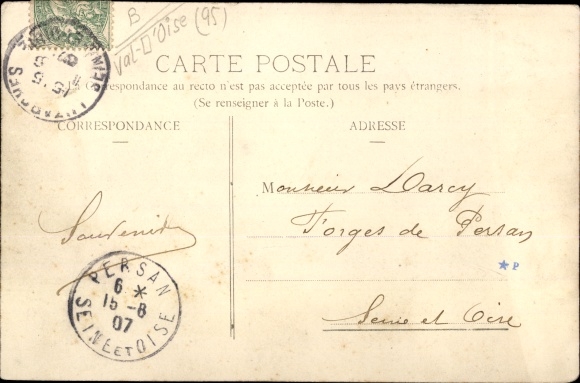 B
Val-D'Oise (95)
CARTE POSTALE
La Correspondance au recto n'est pas acceptée par tous les pays étrangers.
(Se renseigner à la Poste.)
CORRESPONDANCE
ADRESSE
Monsieur Darcy
Forges de Persan
Seine et Oise
Souvenir
PERSAN
6 *
15 -8
07
SEINE ET OISE
* P